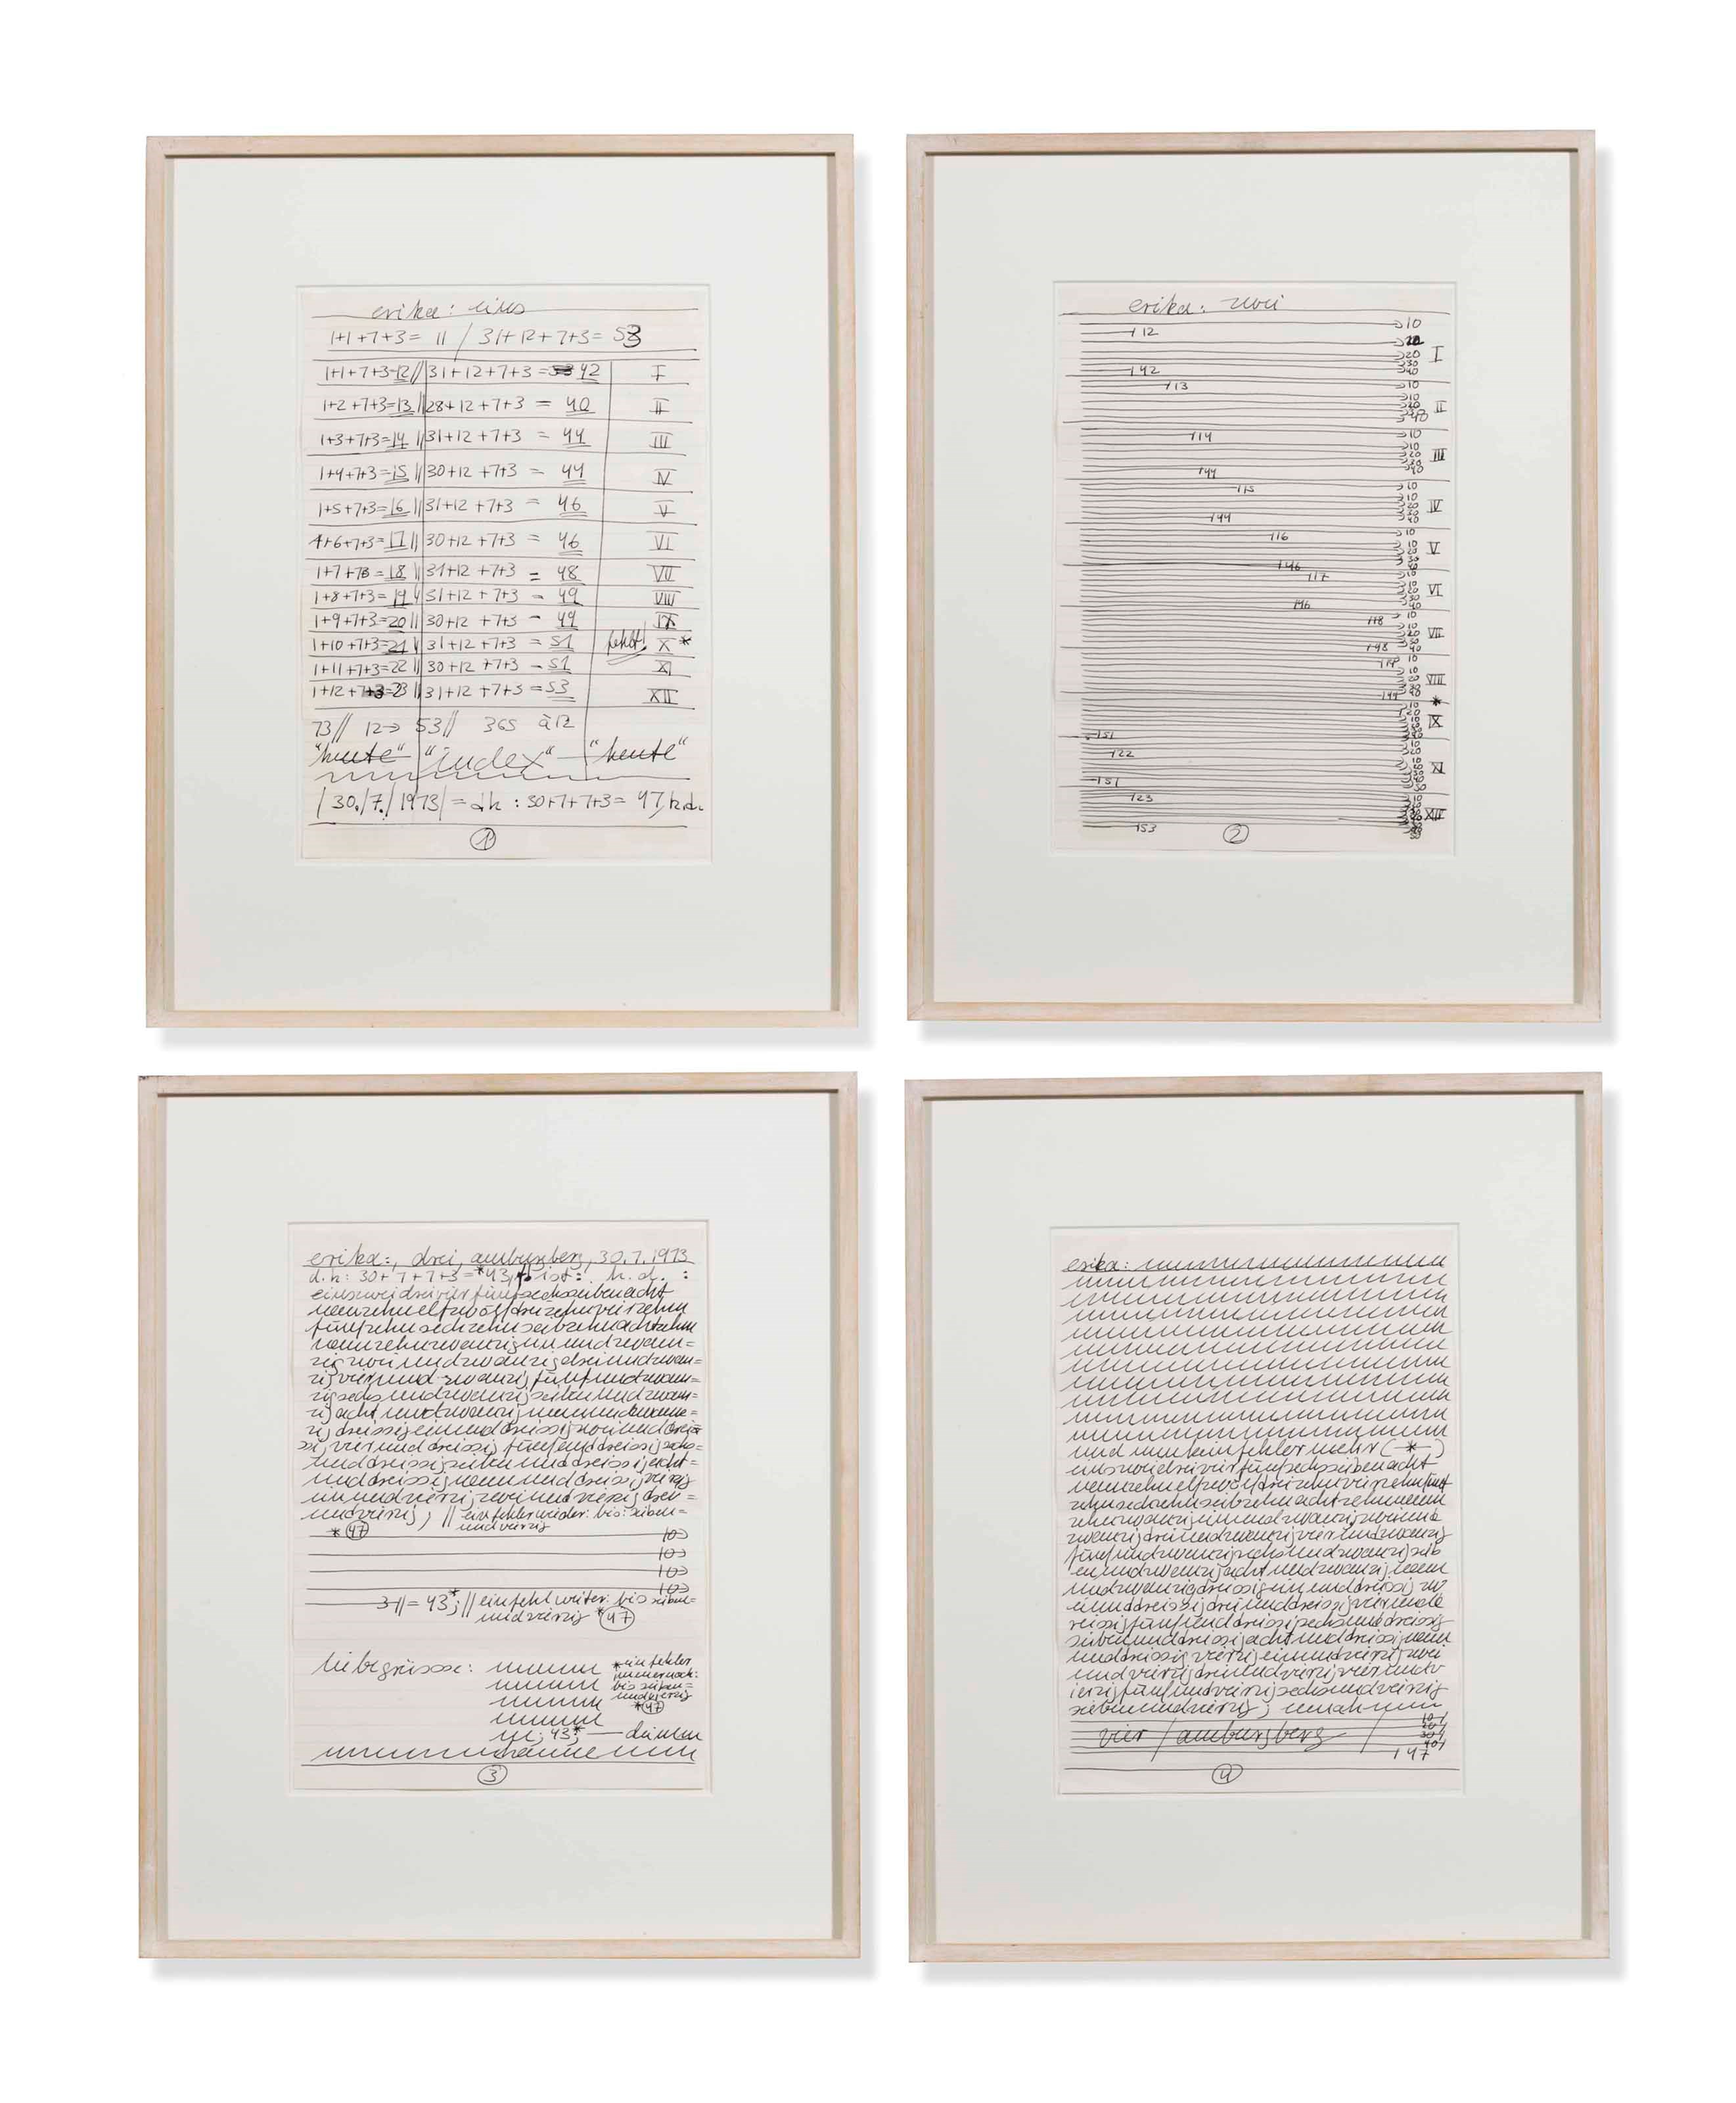 erika: eins
1+1+7+3= 11 / 31+12+7+3= 53
1+1+7+3=12 // 31+12+7+3 = 42 I
1+2+7+3=13 // 28+12+7+3 = 40 II
1+3+7+3=14 // 31+12+7+3 = 44 III
1+4+7+3=15 // 30+12+7+3 = 44 IV
1+5+7+3=16 // 31+12+7+3 = 46 V
1+6+7+3=17 // 30+12+7+3 = 46 VI
1+7+73=18 // 31+12+7+3 = 48 VII
1+8+7+3=19 // 31+12+7+3 = 49 VIII
1+9+7+3=20 // 30+12+7+3 = 49 IX
1+10+7+3=21 // 31+12+7+3 = 51 fehlt! X *
1+11+7+3=22 // 30+12+7+3 = 51 XI
1+12+7+3=23 // 31+12+7+3 = 53 XII
73// 12→ 53// 365 à 12
"heute" "index" — "heute"
/30./7./1973/ = dh: 30+7+7+3= 47, k.d.
1
erika: zwei
10
112
20
20
I
30
142 40
113 10
10
20 II
30
40
114 10
10
20 III
30
144 40
115 10
10
20 IV
30
144 40
116 10
10
20 V
30
146 40
117 10
20 VI
30
146 40
118 10
10
20 VII
30
148 40
119 10
10
20 VIII
30
149 40
*
10
20
IX
151
10
122 20
XI
151
123 10
XII
153
2
erika:, drei, amburgberg, 30.7.1973
d.h: 30+7+7+3=*43, ist: k.d. :
einszweidreivierfünfsechssiebenacht
neunzehnelfzwölfdreizehnvierzehn
fünfzehnsechzehnsiebzehnachtzehn
neunzehnzwanzigeinundzwan=
zigzweiundzwanzigdreiundzwan=
zigvierundzwanzigfünfundzwan=
zigsechsundzwanzigsiebenundzwan=
zigachtundzwanzigneunundzwan=
zigdreissigeinunddreissigzweiunddreis=
sigvierunddreissigfünfunddreissigsechs=
unddreissigsiebenunddreissigacht=
unddreissigneununddreissigvierzig
einundvierzigzweiundvierzigdrei=
undvierzig; // ein fehler wieder: bis: sieben=
* 47 undvierzig
10
10
10
10
3// = 43*; // ein fehl weiter: bis sieben=
undvierzig * 47
liebe grüsse: * ein fehler
immer noch:
bis sieben=
undvierzig
* 47
43* — deinen
hanne
3
erika:
und nun kein fehler mehr (—*—)
einszweidreivierfünfsechssiebenacht
neunzehnelfzwölfdreizehnvierzehnfünf
zehnsechzehnsiebzehnachtzehnneun
zehnzwanzigeinundzwanzigzweiund
zwanzigdreiundzwanzigvierundzwanzig
fünfundzwanzigsechsundzwanzigsieb
enundzwanzigachtundzwanzigneun
undzwanzigdreissigeinunddreissigzw
eiunddreissigdreiunddreissigvierundd
reissigfünfunddreissigsechsunddreissig
siebenunddreissigachtunddreissigneun
unddreissigvierzigeinundvierzigzwei
undvierzigdreiundvierzigvierundv
ierzigfünfundvierzigsechsundvierzig
siebenundvierzig;
10/
20/
vier / amburgberg / 30/
40/
147
4